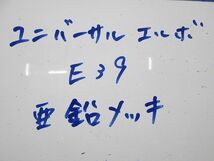 ユニバーサル エルボ
E39
亜鉛メッキ